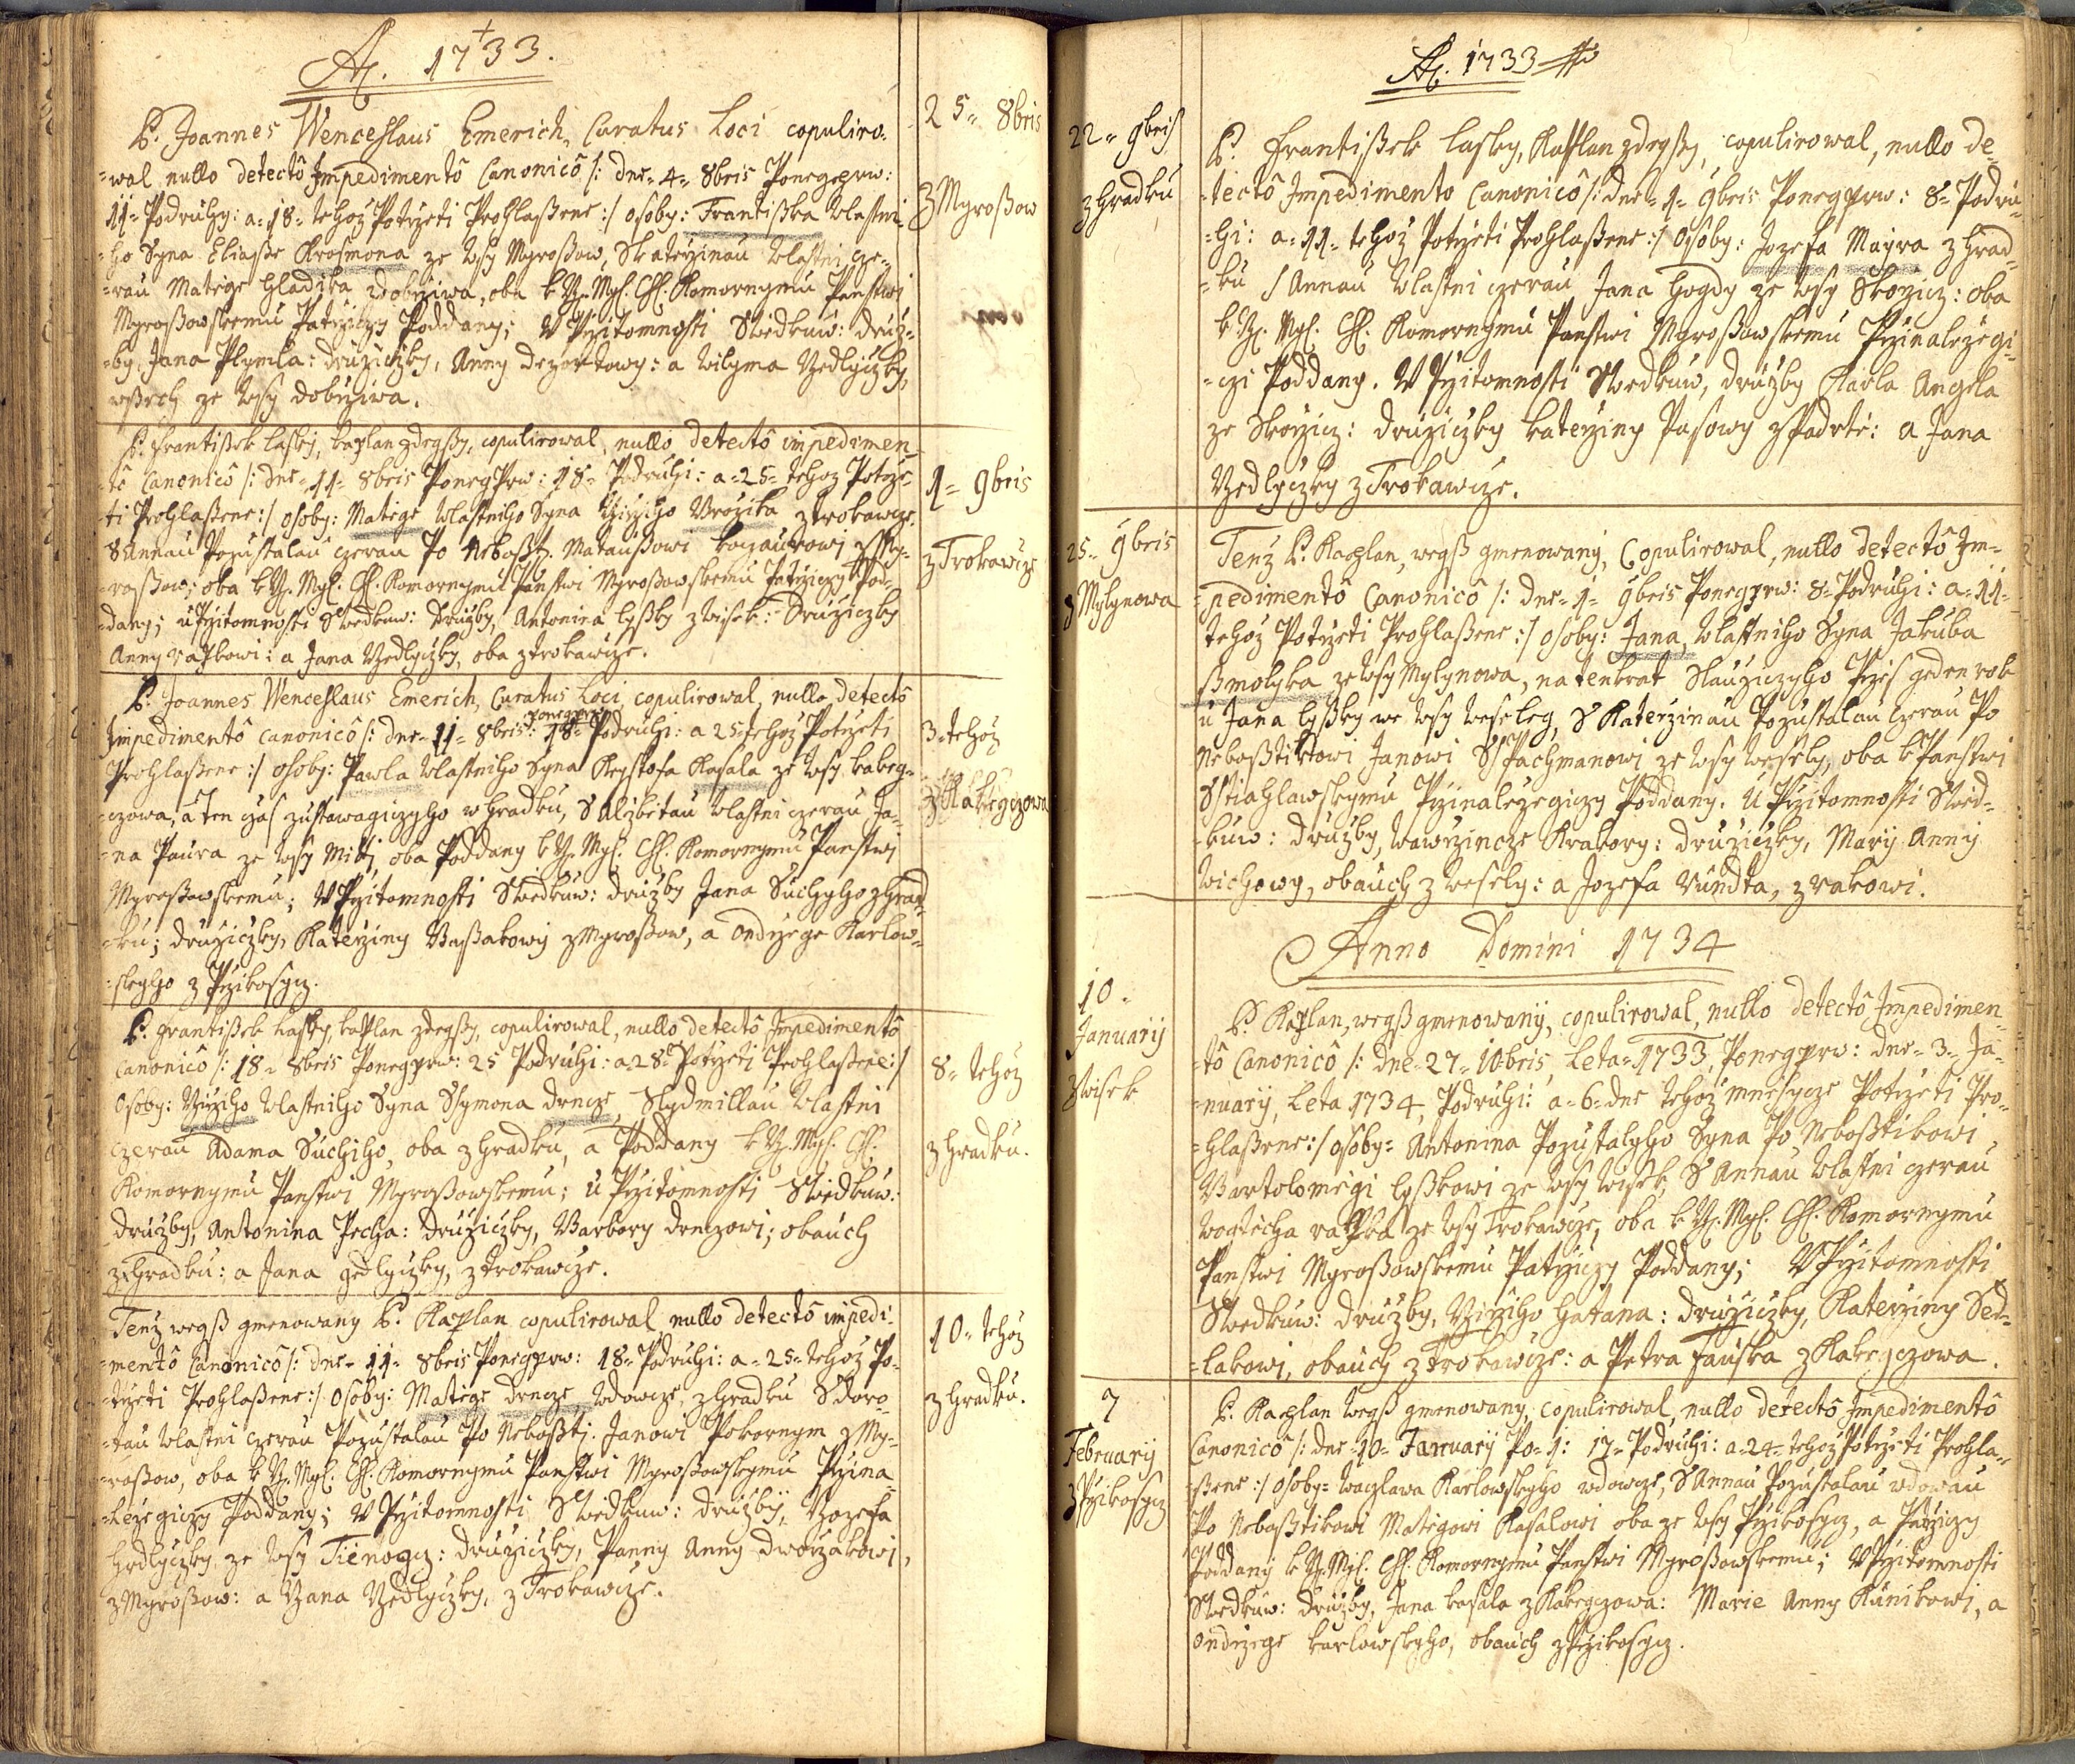 A. 1733.
P. Joannes Wenceslaus Emerich, Curatus Loci copuliro-
-wal nullo detectô Impedimentô Canonicô /: dne 4= 8bris Ponegprw:
11= Podruhy: a= 18= tehoz Potrzeti Prohlaßene :/ osoby: Frantißka wlastni-
ho Syna Eliaße Krosmona ze wsy Myroßow, S katerzinau wlastni cze-
-rau Matege Hladika z dobrziwa, oba k Komornymu Panstwi
Myroßowskemu Patrziczy Poddany; W Przitomnosti Swedkuw: druz-
-by, Jana Plymla: druziczky, Anny dezortowy: a wilyma Yedlyczky,
wßech ze wsy dobrziwa.
25= 8bris
z Myroßow
P. Frantißek lasky, kaplan zdegßy, copulirowal nullo detectô impedimen-
tô Canonicô /: dne= 11= 8bris PonegPrw: 18= Podruhi: a= 25= tehoz Potrze-
-ti Prohlaßene :/ osoby: Matege wlastniho Syna Girziho Brozika z trokawcze,
S Annau Pozustalau czerau Po Neboßt. Mataußowi kozaurowi z My-
-roßow; oba k Komornymu Panstwi Myroßowskemu Patrziczy Pod-
-dany; u Przitomnosti Swedkuw: Druzby, Antonina lyßky z wisek: Druziczky
Anny raffkowi: a Jana Yedlyczky, oba z trokawcze.
1= 9bris
z Trokawcze
P. Joannes Wenceslaus Emerich, Curatus Loci, copulirowal, nullo detectô
Impedimentô Canonicô /: dne= 11= 8bris: ponegprw: 18= Podruhi: a 25= tehoz Potrzeti
Prohlaßene :/ osoby: Pawla wlastniho Syna Krystofa Kasala ze wsy kakeg-
-czowa, a ten czas zustawagiczyho w hradku, S Alzbetau wlastni czerau Ja-
-na Paura ze wsy Miti, oba Poddany k Komornymu Panstwi
Myroßowskemu; W Przitomnosti Swedkuw: druzby Jana Suchyho z Hrad-
-ku; druziczky, Katerziny Baßakowy z Myroßow, a Ondrzege Karlow-
-skyho z Przikosycz.
3= tehoz
z Kakegczowa
P. Frantißek Lasky, kaplan zdegßy, copulirowal, nullo detectô Impedimentô
Canonicô /: 18= 8bris Ponegprw: 25 Podruhi: a 28= Potrzeti Prohlaßene :/
Osoby: Girziho wlastniho Syna Ssymona drncze, S lydmillau wlastni
czerau Adama Suchiho, oba z hradku, a Poddany k
Komornymu Panstwi Myroßowskemu; u Przitomnosti Swedkuw:
druzby, Antonina Pecha: druziczky, Barbory drnczowi; obauch
z Hradku: a Jana gedlyczky, z trokawcze.
8= tehoz
z hradku.
Tenz wegß gmenowany P. Kaplan copulirowal nullo detectô impedi-
-mentô Canonicô /: dne= 11= 8bris Ponegprw: 18= Podruhi: a= 25= tehoz Po-
-trzeti Prohlaßene :/ Osoby: Matege drncze wdowcze, z hradku S doro-
-tau wlastni czerau Pozustalau Po Neboßtj. Janowi Pokornym z My-
-roßow, oba k Komornymu Panstwi Myroßowskymu Przina-
-lezegiczy Poddany; W Przitomnosti Swedkuw: druzby, Yozefa
hedlyczky, ze wsy Tienogcz: druziczky, Panny Anny dworzakowi,
z Myroßow: a Yana Yedlyczky, z Trokawcze.
10= tehoz
z hradku.
A. 1733
22= 9bris
z hradku
P. Frantißek lasky, Kaplan zdegßy, copulirowal, nullo de-
-tectô Impedimento Canonicô /: dne= 1= 9bris Ponegprw: 8= Podru-
-hi: a= 11= tehoz Potrzeti Prohlaßene :/ Osoby: Jozefa Mayra z hrad-
-ku S Annau wlastni czerau Jana Hogdy ze wsy Skorzicz: oba
k Komornymu Panstwi Myroßowskemu Przinalezegi-
-czi Poddany. W Przitomnosti Swedkuw, druzby Karla Angela
ze Skorzicz: druziczky katerziny Pasowy z Padrtě: a Jana
Yedlyczky z Trokawcze.
25= 9bris
z Mylynowa
Tenz P. Kaplan, wegß gmenowany, Copulirowal, nullo detectô Im-
-pedimentô Canonicô /: dne= 1= 9bris Ponegprw: 8= Podruhi: a= 11=
tehoz Potrzeti Prohlaßene :/ osoby: Jana, wlastniho Syna Jakuba
ßmolyka ze wsy Mylynowa, natenkrat Slauziczyho Przes geden rok
u Jana lyßky we wsy weseleg, S Katerzinau Pozustalau czerau Po
Neboßtikowi Janowi Sspachmanowi ze wsy wesely, oba k Panstwi
Sstiahlawskymu Przinalezegiczy Poddany. U Przitomnosti Swed-
-kuw: druzby, wawrzincze Krakory: druziczky, Mary Anny
wichowy, obauch z wesely: a Jozefa rundta, z rakowi.
Anno Domini 1734
10=
Januarij
z wisek
P. Kaplan, wegß gmenowany, copulirowal, nullo detectô Impedimen-
-tô Canonicô /: dne= 27= 10bris, Leta= 1733, Ponegprw: dne= 3= Ja-
-nuarij, Leta 1734, Podruhi: a= 6= dne tehoz mnesycze Potrzeti Pro-
-hlaßene :/ osoby= Antonina Pozustalyho Syna Po Neboßtikowi
Bartolomegi lyßkowi ze wsy wisek, S Annau wlastni czerau
wogtecha raffka ze wsy Trokawcze, oba k Komornymu
Panstwi Myroßowskemu Patrziczy Poddany; W Przitomnosti
Swedkuw: druzby, Yirziho hatana: druziczky, Katerziny Sed-
-lakowi, obauch z Trokawcze: a Petra fauska z Kakegczowa.
7
February
z Przikosycz
P. Kaplan wegß gmenowany, copulirowal, nullo detectô Impedimentô
Canonicô /: dne= 10= January Po= 1: 17= Podruhi: a= 24= tehoz Potrzeti Prohla-
-ßene :/ osoby= waczlawa Karlowskyho wdowcze, S Annau Pozustalau wdowau
Po Neboßtikowi Mategowi Kasalowi oba ze wsy Przikosycz, a Patrziczy
Poddany k Komornymu Panstwi Myroßowskemu; W Przitomnosti
Swedkuw: druzby, Jana kasala z Kakegczowa: Marie Anny Kunikowi, a
Ondrzege karlowskyho, obauch z Przikosycz.